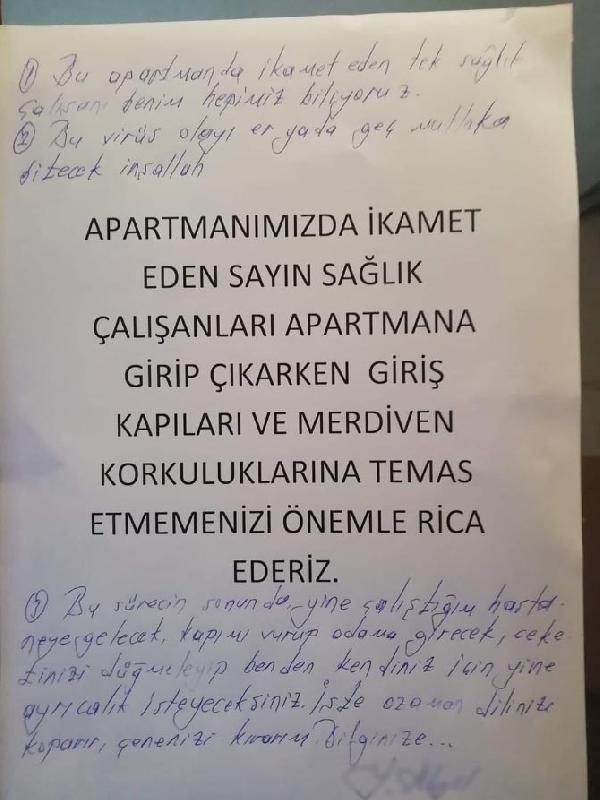 ① Bu apartmanda ikamet eden tek sağlık
çalışanı benim hepimiz biliyoruz.
② Bu virüs olayı er yada geç mutlaka
bitecek inşallah
APARTMANIMIZDA İKAMET
EDEN SAYIN SAĞLIK
ÇALIŞANLARI APARTMANA
GİRİP ÇIKARKEN GİRİŞ
KAPILARI VE MERDİVEN
KORKULUKLARINA TEMAS
ETMEMENİZİ ÖNEMLE RİCA
EDERİZ.
③ Bu sürecin sonunda, yine çalıştığım hasta-
neye gelecek, kapımı vurup odama girecek, ceke-
tinizi düğmeleyip benden kendiniz için yine
ayrıcalık isteyeceksiniz. İşte ozaman dilinizi
koparır, çenenizi kırarım Bilginize...